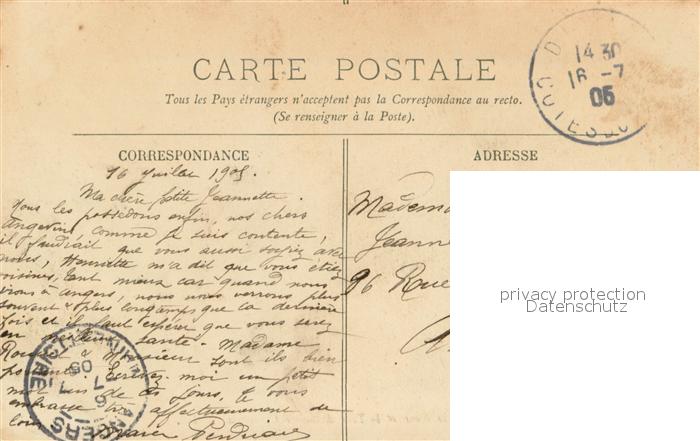 CARTE POSTALE
Tous les Pays étrangers n'acceptent pas la Correspondance au recto.
(Se renseigner à la Poste).
14 30
16 -7
05
COTES DU
CORRESPONDANCE
ADRESSE
16 Juillet 1905.
Ma chère petite Jeannette.
Nous les possédons enfin, nos chers
Angevins, comme je suis contente,
il faudrait que vous aussi soyez avec
nous, Henriette m'a dit que vous étiez
voisines, tant mieux car quand nous
irons à Angers, nous nous verrons plus
souvent & plus longtemps que la dernière
fois et il faut espérer que vous serez
en meilleure santé. Madame
& Monsieur sont ils bien
portants. Ecrivez moi un petit
mot un de ces jours, je vous
embrasse très affectueusement de
loin
Madem
Jeanne
96 Rue
privacy protection
Datenschutz
ANGERS
MAINE